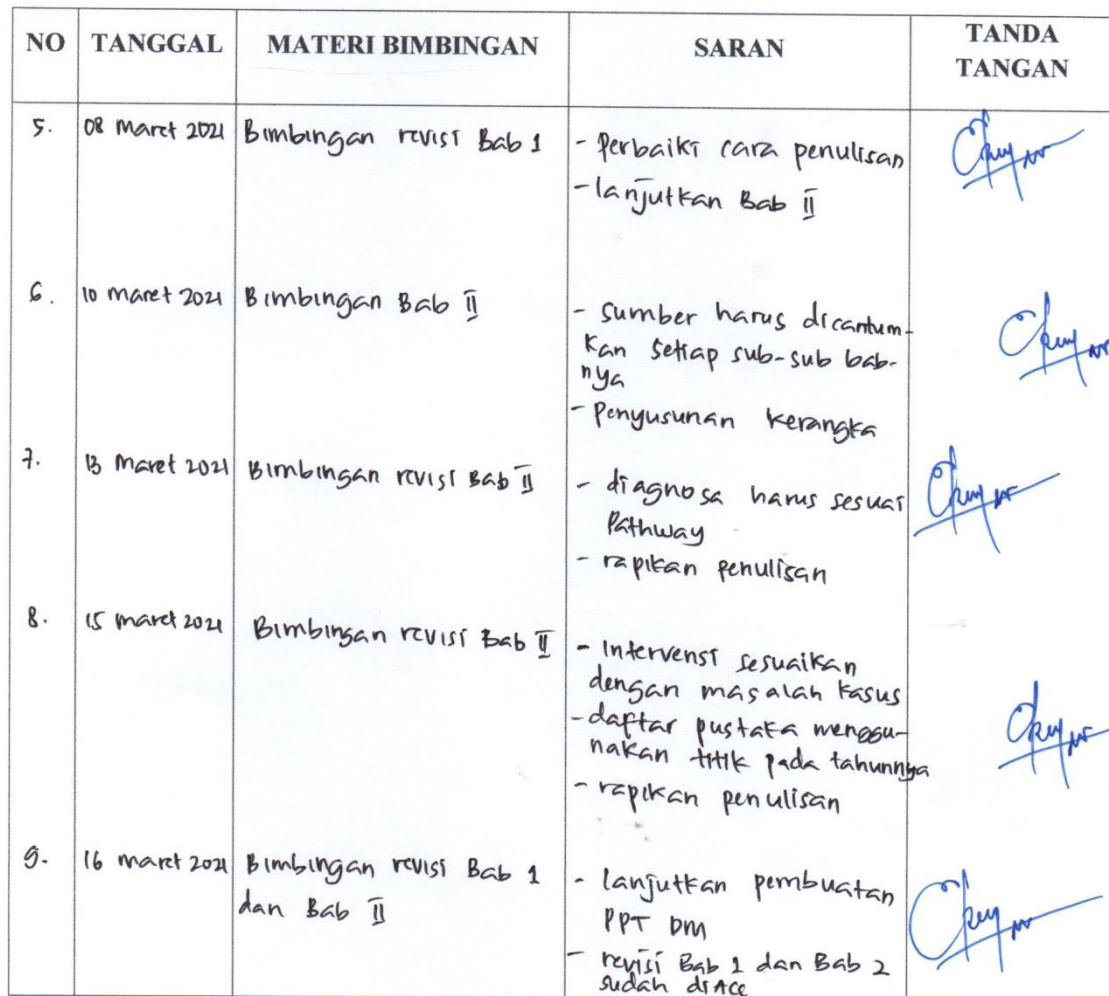 NO TANGGAL MATERI BIMBINGAN SARAN TANDA TANGAN
5. 08 Maret 2021 Bimbingan revisi Bab 1 - Perbaiki cara penulisan
- lanjutkan Bab II
6. 10 maret 2021 Bimbingan Bab II - sumber harus dicantum-
kan setiap sub-sub bab-
nya
- Penyusunan kerangka
7. 13 Maret 2021 Bimbingan revisi Bab II - diagnosa harus sesuai
Pathway
- rapikan penulisan
8. 15 maret 2021 Bimbingan revisi Bab II - Intervensi sesuaikan
dengan masalah kasus
- daftar pustaka menggu-
nakan titik pada tahunnya
- rapikan penulisan
9. 16 maret 2021 Bimbingan revisi Bab 1 - lanjutkan pembuatan
dan Bab II PPT DM
- revisi Bab 1 dan Bab 2
sudah di Acc